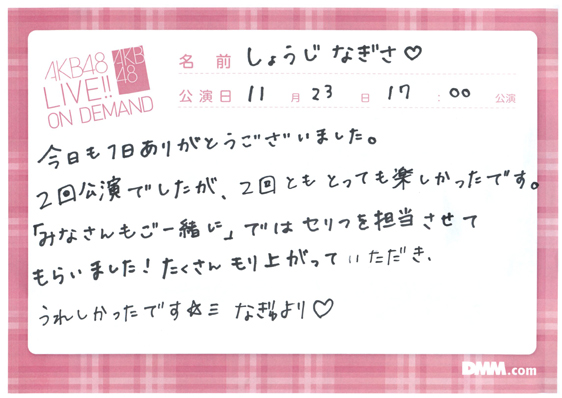 AKB48
LIVE!!
ON DEMAND
AKB
48
名前 しょうじ なぎさ♡
公演日 11月23日 17:00 公演
今日も1日ありがとうございました。
2回公演でしたが、2回とも とっても楽しかったです。
「みなさんもご一緒に」ではセリフを担当させて
もらいました!たくさん もり上がって いただき、
うれしかったです☆ミ なぎゅより♡
DMM.com